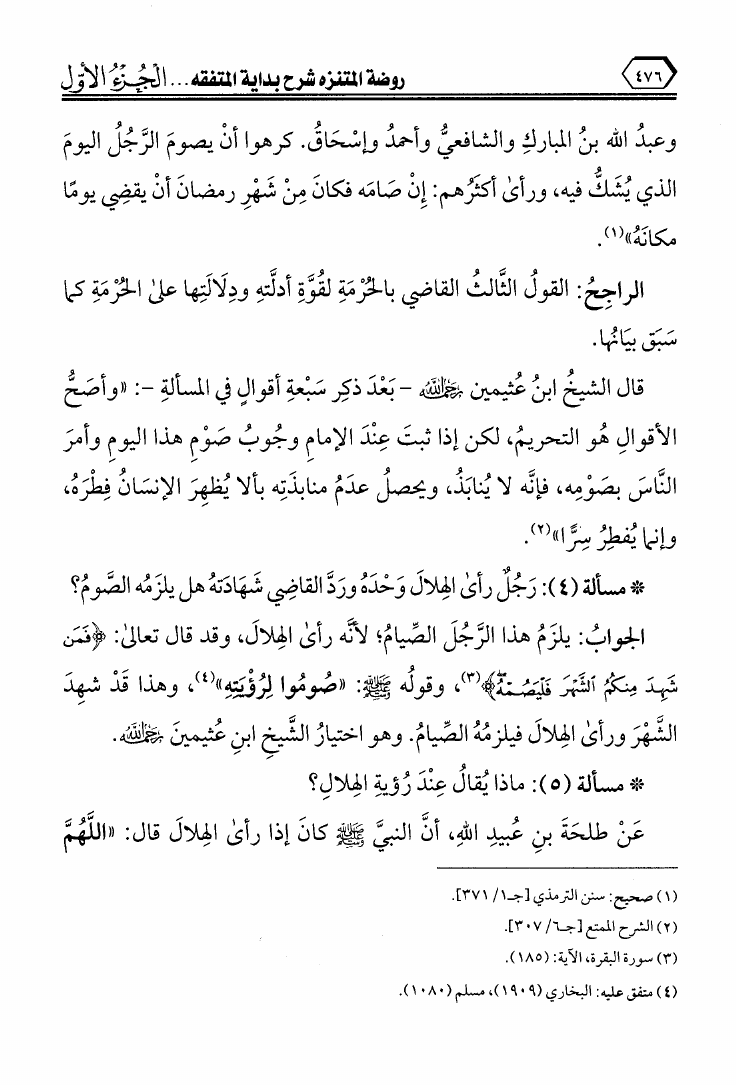 ٤٧٦
روضة المتنزه شرح بداية المتفقه ... الجُزءُ الأوّل
وعبدُ الله بنُ المباركِ والشافعيُّ وأحمدُ وإسْحَاقُ. كرهوا أنْ يصومَ الرَّجُلُ اليومَ
الذي يُشَكُّ فيه، ورأىٰ أكثَرُهم: إنْ صَامَه فكانَ مِنْ شَهْرِ رمضانَ أنْ يقضِي يومًا
مكانَهُ»(١).
الراجِحُ: القولُ الثَّالثُ القاضي بالحُرْمَةِ لقُوَّةِ أدلَّتهِ ودِلَالَتِها علىٰ الحُرْمَةِ كما
سَبَق بيَانُها.
قال الشيخُ ابنُ عُثيمين رحمه الله – بَعْدَ ذكرِ سَبْعةِ أقوالٍ في المسألةِ –: «وأصَحُّ
الأقوالِ هُو التحريمُ، لكن إذا ثبتَ عِنْدَ الإمامِ وجُوبُ صَوْمِ هذا اليومِ وأمرَ
النَّاسَ بصَوْمِه، فإنَّه لا يُنابَذُ، ويحصلُ عدَمُ منابذَتِه بألا يُظهِرَ الإنسَانُ فِطْرَهُ،
وإنما يُفطِرُ سِرًّا»(٢).
* مسألة (٤): رَجُلٌ رأىٰ الهِلالَ وَحْدَهُ ورَدَّ القاضِي شَهَادَتهُ هل يلزَمُه الصَّومُ؟
الجوابُ: يلزَمُ هذا الرَّجُلَ الصِّيامُ؛ لأنَّه رأىٰ الهِلالَ، وقد قال تعالىٰ: ﴿فَمَن
شَهِدَ مِنكُمُ ٱلشَّهْرَ فَلْيَصُمْهُ﴾(٣)، وقولُه ﷺ: «صُومُوا لِرُؤْيَتِهِ»(٤)، وهذا قَدْ شهِدَ
الشَّهْرَ ورأىٰ الهِلالَ فيلزمُهُ الصِّيامُ. وهو اختيارُ الشَّيخِ ابنِ عُثيمينَ رحمه الله.
* مسألة (٥): ماذا يُقالُ عِنْدَ رُؤيةِ الهِلالِ؟
عَنْ طلحَةَ بنِ عُبيدِ اللهِ، أنَّ النبيَّ ﷺ كانَ إذا رأىٰ الهِلالَ قال: «اللَّهُمَّ
(١) صحيح: سنن الترمذي [جـ١/ ٣٧١].
(٢) الشرح الممتع [جـ٦/ ٣٠٧].
(٣) سورة البقرة، الآية: (١٨٥).
(٤) متفق عليه: البخاري (١٩٠٩)، مسلم (١٠٨٠).